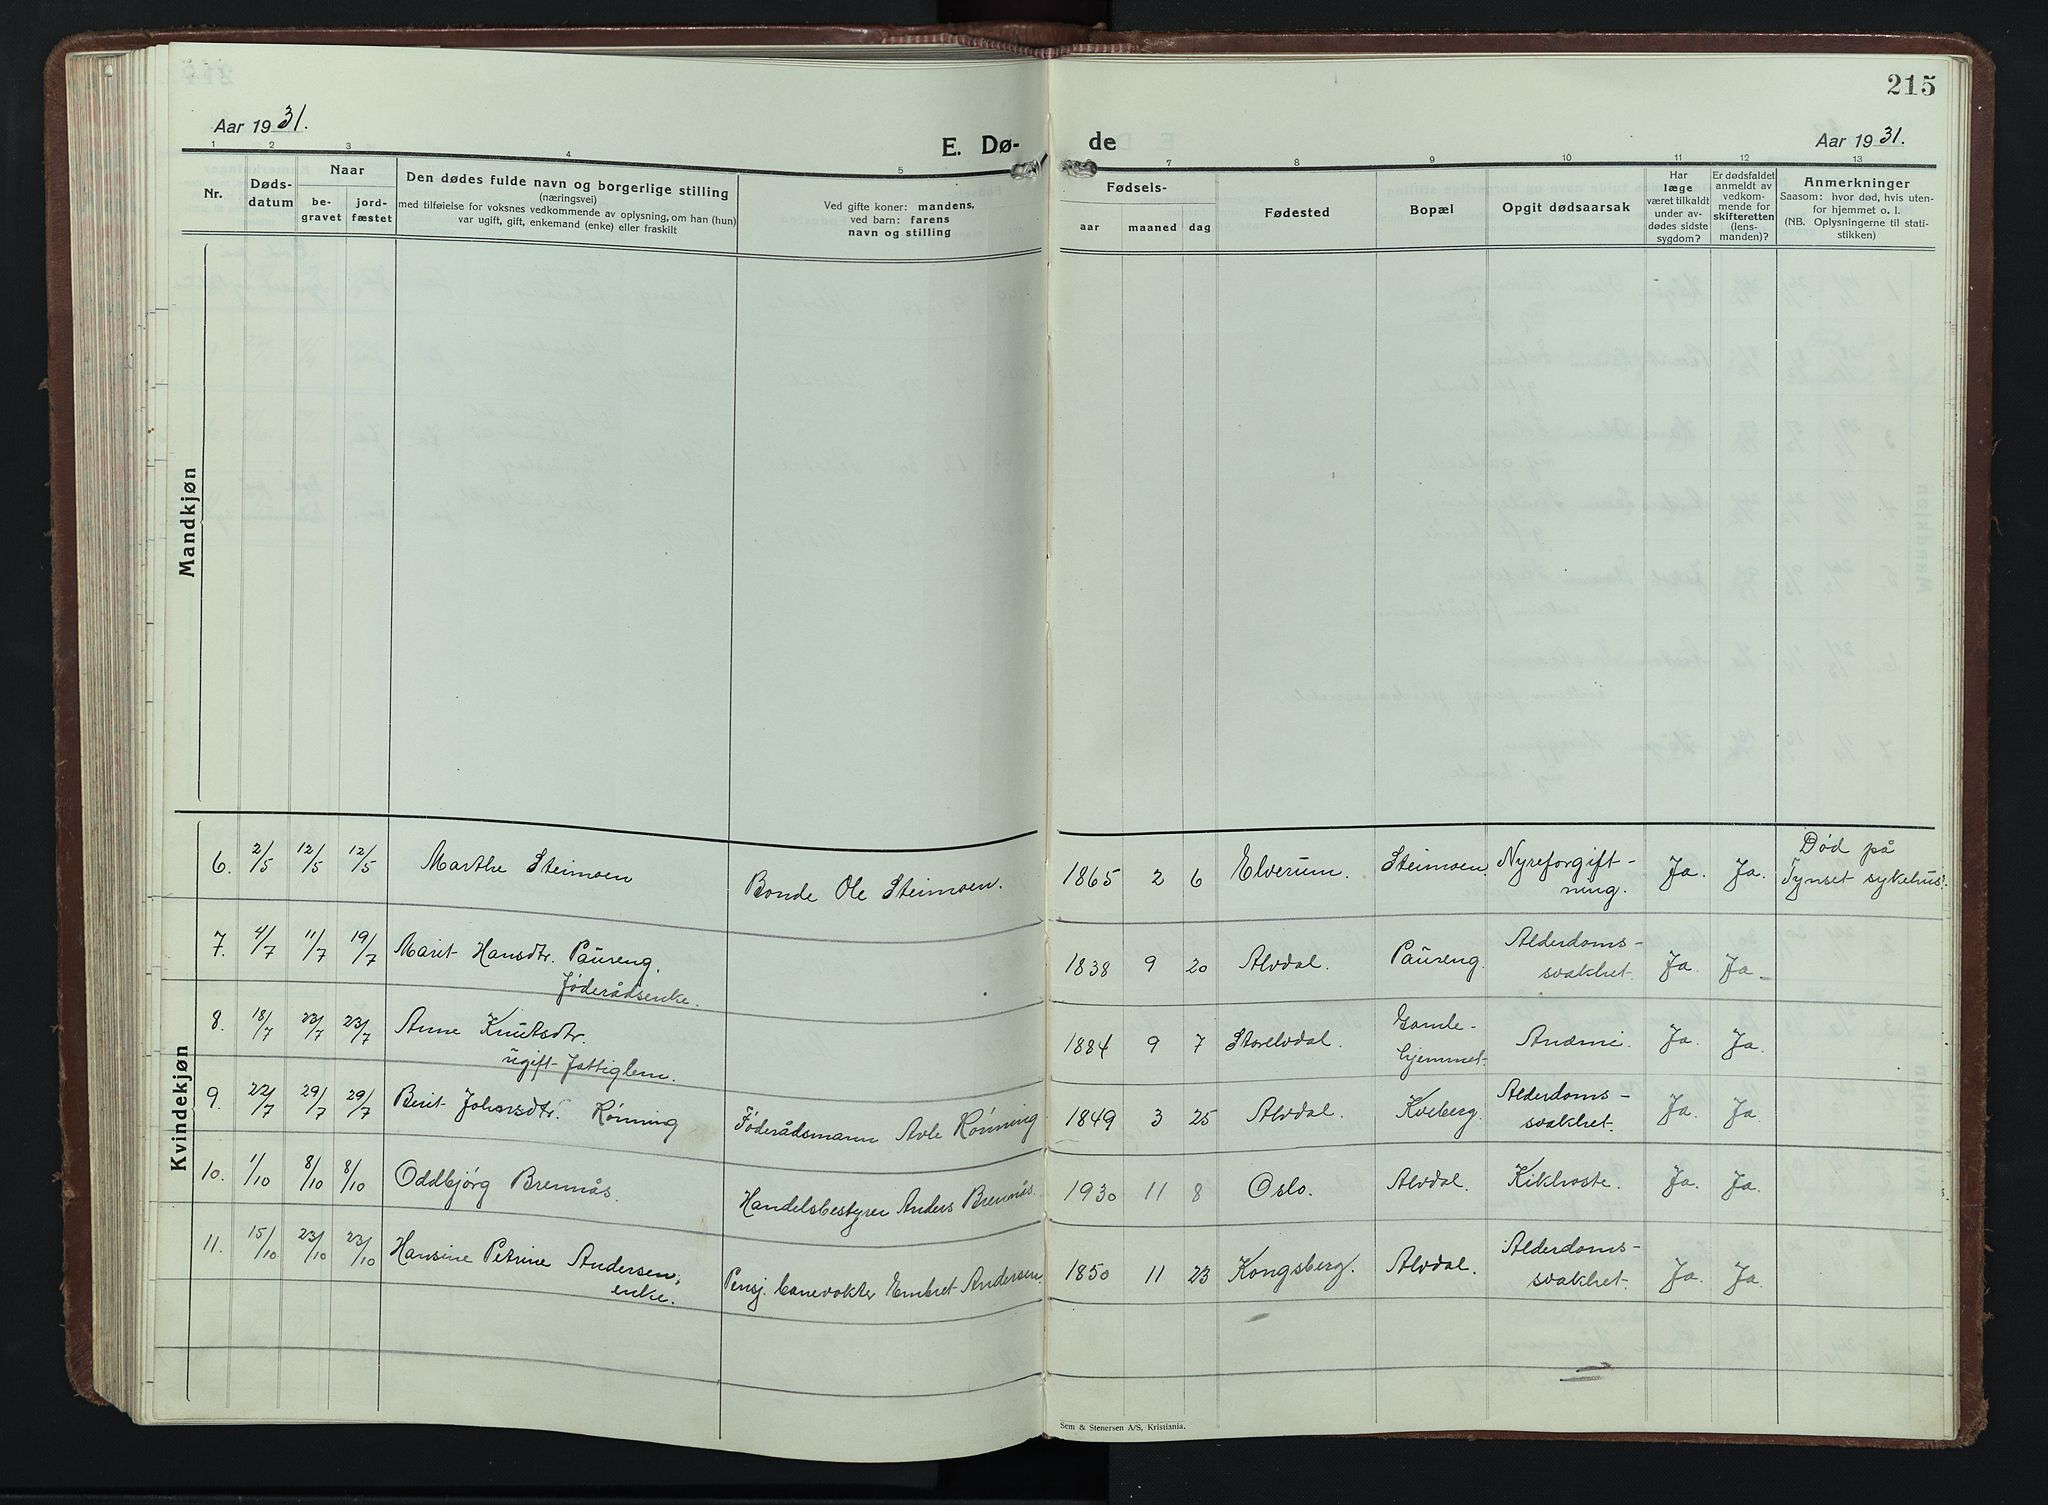 215
Aar 1931.
E. Dø-
de
Aar 1931.
1 2 3 4 5 7 8 9 10 11 12 13
Nr.
Døds-
datum
Naar
be-
gravet
jord-
fæstet
Den dødes fulde navn og borgerlige stilling
(næringsvei)
med tilføielse for voksnes vedkommende av oplysning, om han (hun)
var ugift, gift, enkemand (enke) eller fraskilt
Ved gifte koner: mandens,
ved barn: farens
navn og stilling
Fødsels-
aar maaned dag
Fødested
Bopæl
Opgit dødsaarsak
Har
læge
været tilkaldt
under av-
dødes sidste
sygdom?
Er dødsfaldet
anmeldt av
vedkom-
mende for
skifteretten
(lens-
manden)?
Anmerkninger
Saasom: hvor død, hvis uten-
for hjemmet o. l.
(NB. Oplysningerne til stati-
stikken)
Mandkjøn
Kvindekjøn
6. 2/5 12/5 12/5 Marthe Steimoen Bonde Ole Steimoen. 1865 2 6 Elverum. Steimoen. Nyreforgift-
ning. Ja. Ja. Død på
Tynset sykehus.
7. 4/7 11/7 19/7 Marit Hansdtr. Paureng,
Føderådsenke. 1838 9 20 Alvdal. Paureng. Alderdoms-
svakhet. Ja. Ja
8. 18/7 23/7 23/7 Anne Knutsdtr.
ugift fattiglem. 1884 9 7 Storelvdal. Gamle-
hjemmet. Anæmi. Ja. Ja.
9. 22/7 29/7 29/7 Berit Johansdtr. Rønning Føderådsmann Avle Rønning 1849 3 25 Alvdal. Kveberg. Alderdoms-
svakhet. Ja. Ja.
10. 1/10 8/10 8/10 Oddbjørg Brennås. Handelsbestyrer Anders Brennås. 1930 11 8 Oslo. Alvdal. Kikhoste. Ja. Ja.
11. 15/10 23/10 23/10 Hansine Petrine Andersen,
enke. Pensj. banevokter Embret Andersen. 1850 11 23 Kongsberg. Alvdal. Alderdoms-
svakhet. Ja. Ja.
Sem & Stenersen A/S, Kristiania.